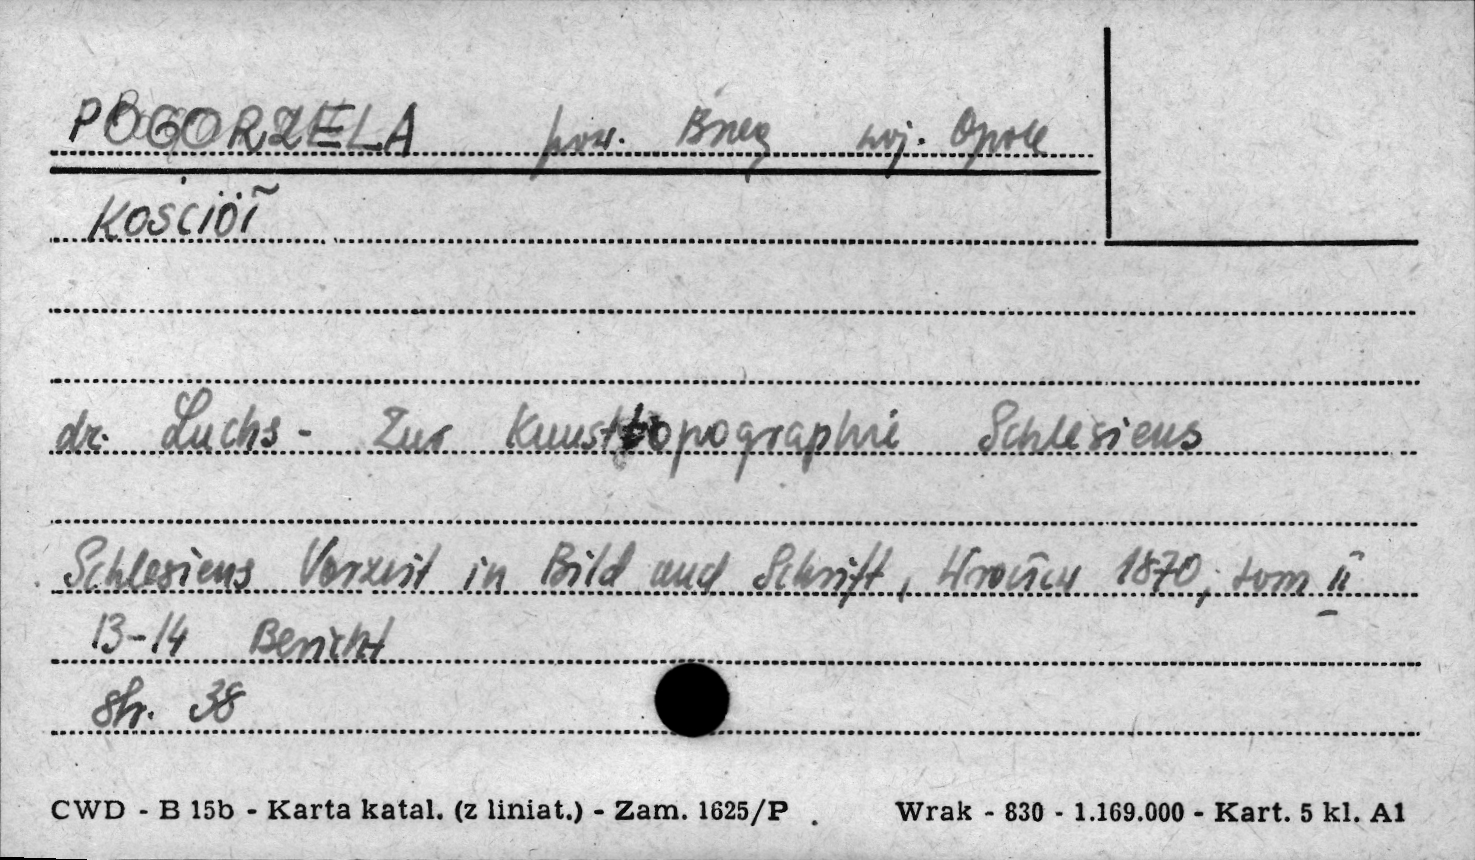 POGORZELA pow. Brzeg woj. Opole
Kościół
dr. Luchs - Zur Kunsttopographie Schlesiens
Schlesiens Vorzeit in Bild und Schrift, Wrocław 1870, tom II
13-14 Bericht
str. 38
CWD - B 15b - Karta katal. (z liniat.) - Zam. 1625/P . Wrak - 830 - 1.169.000 - Kart. 5 kl. A1